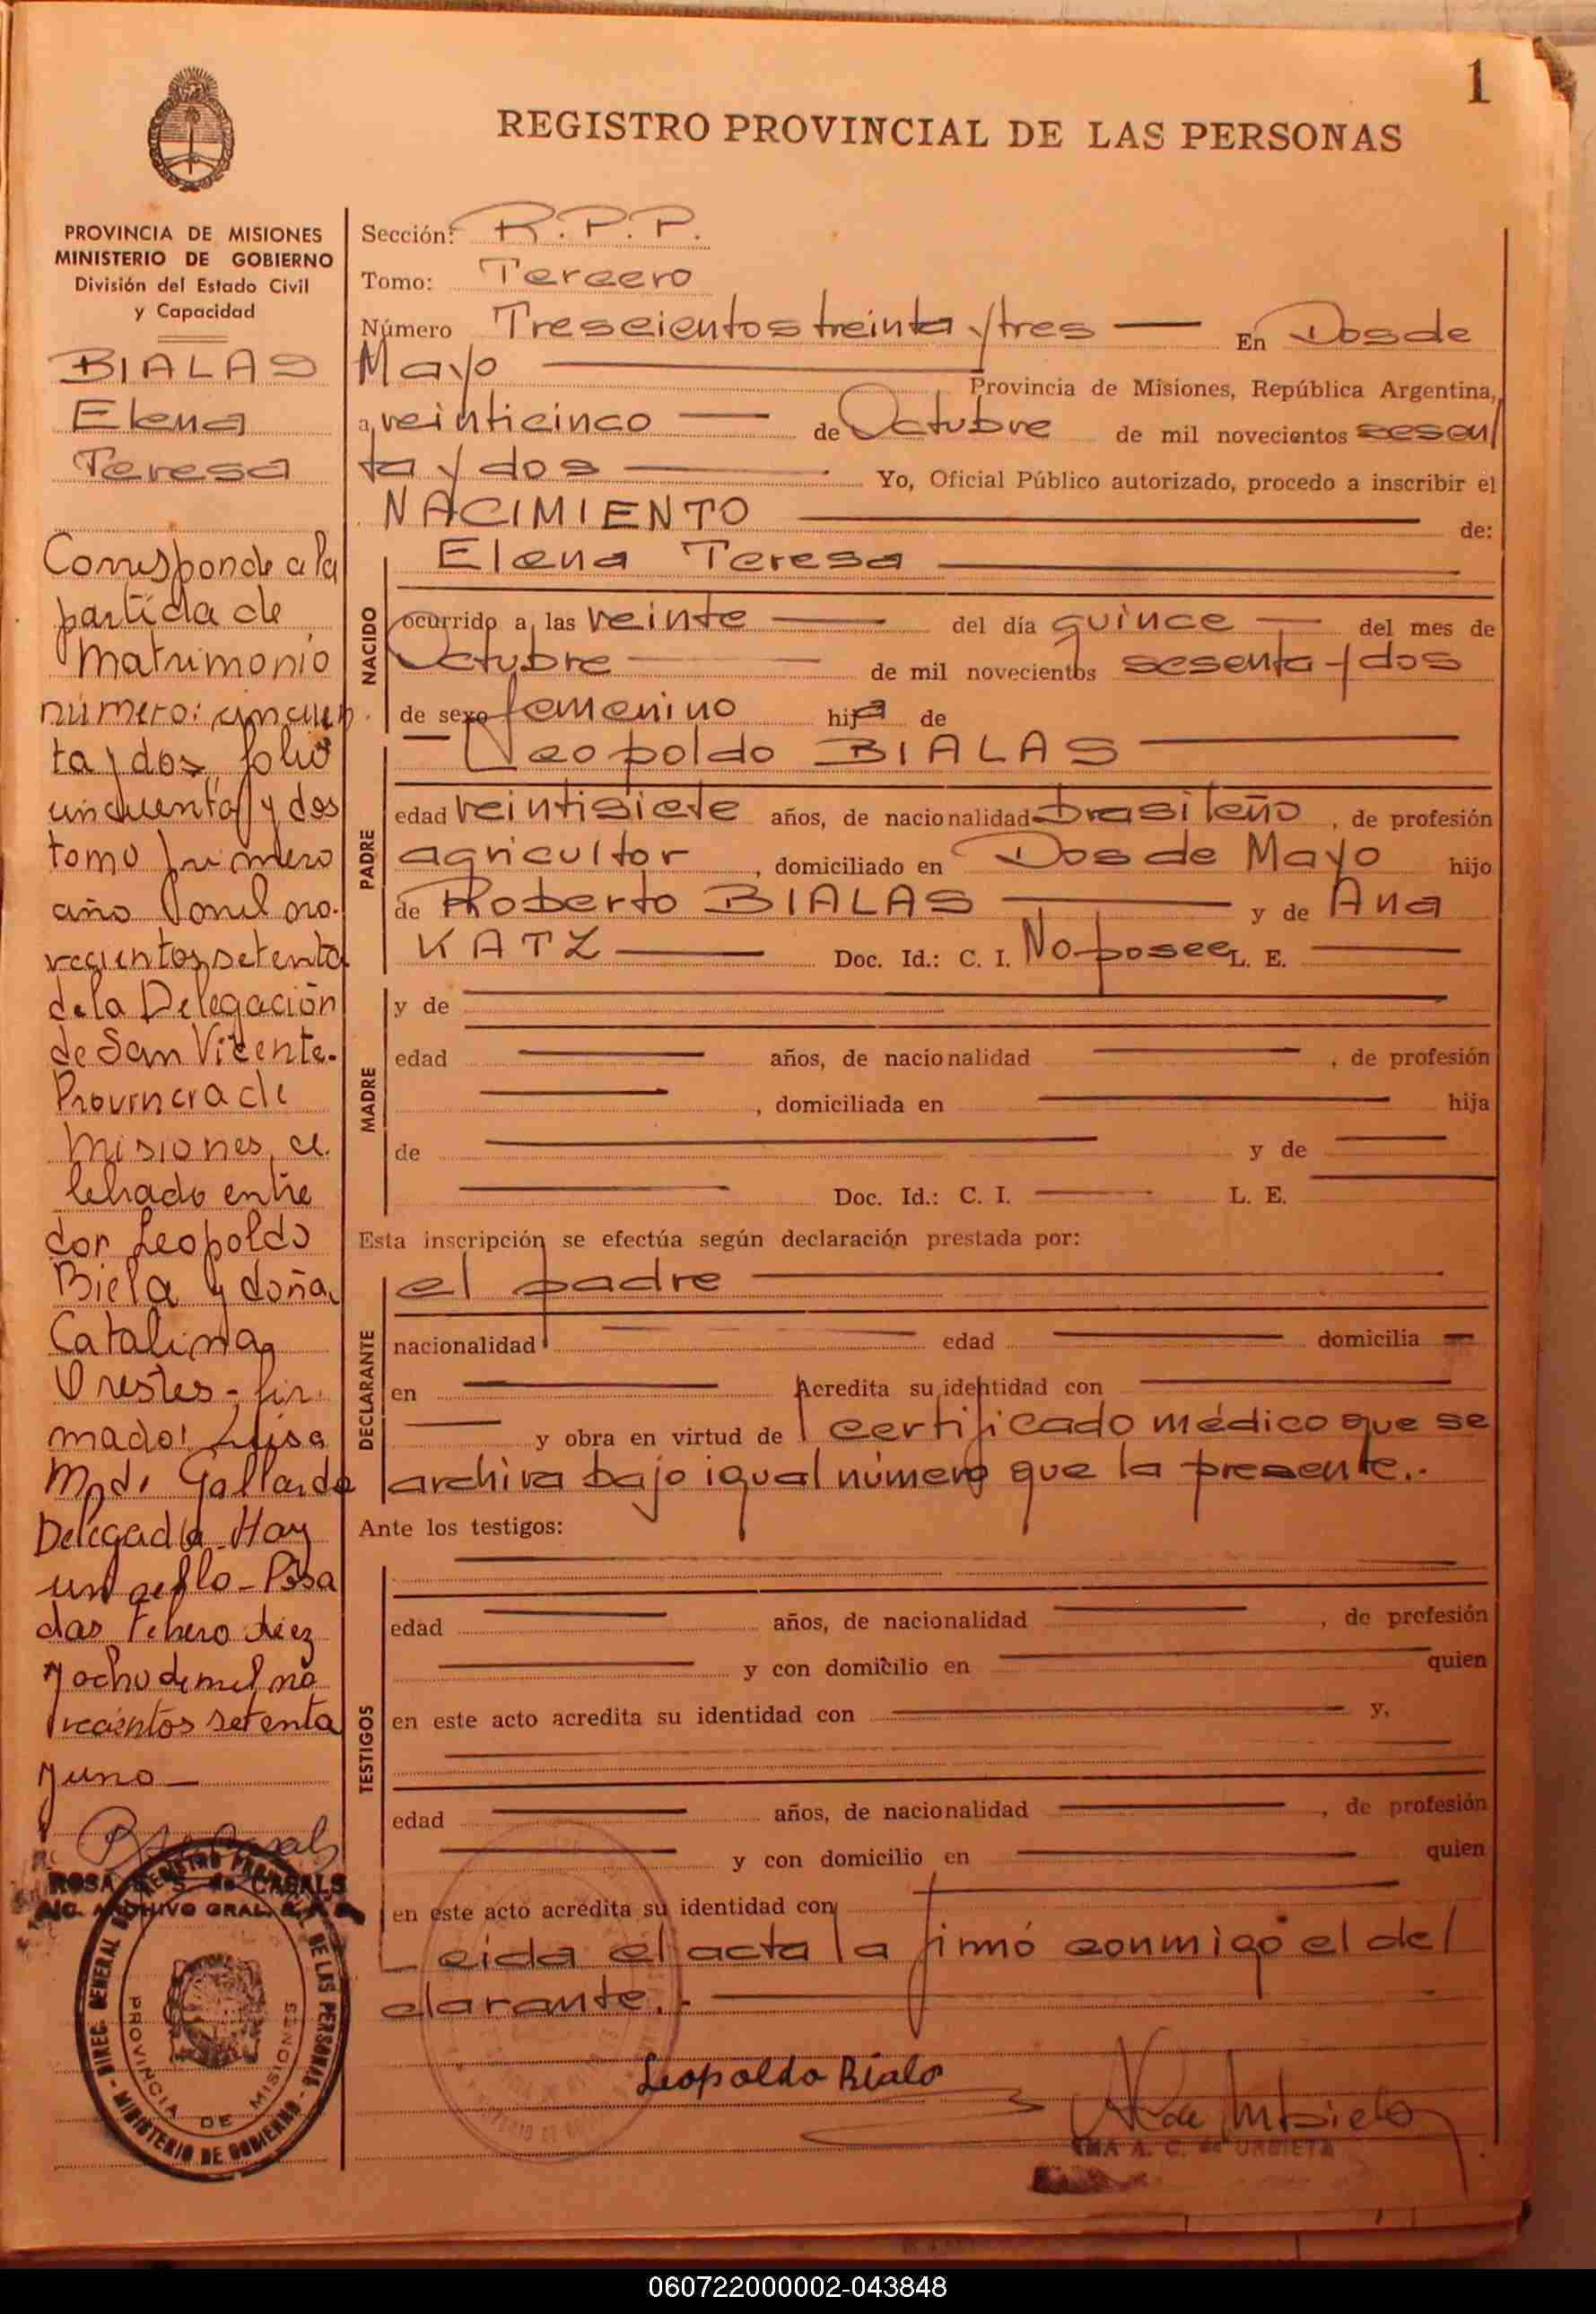 1
REGISTRO PROVINCIAL DE LAS PERSONAS
PROVINCIA DE MISIONES
MINISTERIO DE GOBIERNO
División del Estado Civil
y Capacidad
BIALAS
Elena
Teresa
Corresponde a la
partida de
Matrimonio
número: cincuen
ta y dos, folio
cincuenta y dos
tomo primero
año mil no.
vecientos setenta
de la Delegación
de San Vicente.
Provincia de
Misiones, ce
lebrado entre
don Leopoldo
Biela y doña
Catalina
Orestes - fir
mado: Luisa
M. de Gallardo
Delegada. Hay
un sello - Posa
das Febrero diez
y ocho de mil no
vecientos setenta
y uno
ROSA S. de CASALS
ARCHIVO GRAL.
DIREC. GENERAL DEL REGISTRO PROVINCIAL DE LAS PERSONAS - MINISTERIO DE GOBIERNO -
PROVINCIA DE MISIONES
Sección: R.P.P.
Tomo: Tercero
Número Trescientos treinta y tres En Dos de
Mayo Provincia de Misiones, República Argentina,
a veinticinco de Octubre de mil novecientos sesen
ta y dos Yo, Oficial Público autorizado, procedo a inscribir el
NACIMIENTO de:
NACIDO
Elena Teresa
ocurrido a las veinte del día quince del mes de
Octubre de mil novecientos sesenta y dos
de sexo femenino hija de
PADRE
Leopoldo BIALAS
edad veintisiete años, de nacionalidad brasileño, de profesión
agricultor, domiciliado en Dos de Mayo hijo
de Roberto BIALAS y de Ana
KATZ Doc. Id.: C. I. No posee L. E.
MADRE
y de
edad años, de nacionalidad , de profesión
, domiciliada en hija
de y de
Doc. Id.: C. I. L. E.
Esta inscripción se efectúa según declaración prestada por:
DECLARANTE
el padre
nacionalidad edad domicilia
en Acredita su identidad con
y obra en virtud de certificado médico que se
archiva bajo igual número que la presente.-
Ante los testigos:
TESTIGOS
edad años, de nacionalidad , de profesión
y con domicilio en quien
en este acto acredita su identidad con y,
edad años, de nacionalidad , de profesión
y con domicilio en quien
en este acto acredita su identidad con
Leida el acta la firmó conmigo el de
clarante.-
Leopoldo Bialas
A. C. de URBIETA
060722000002-043848